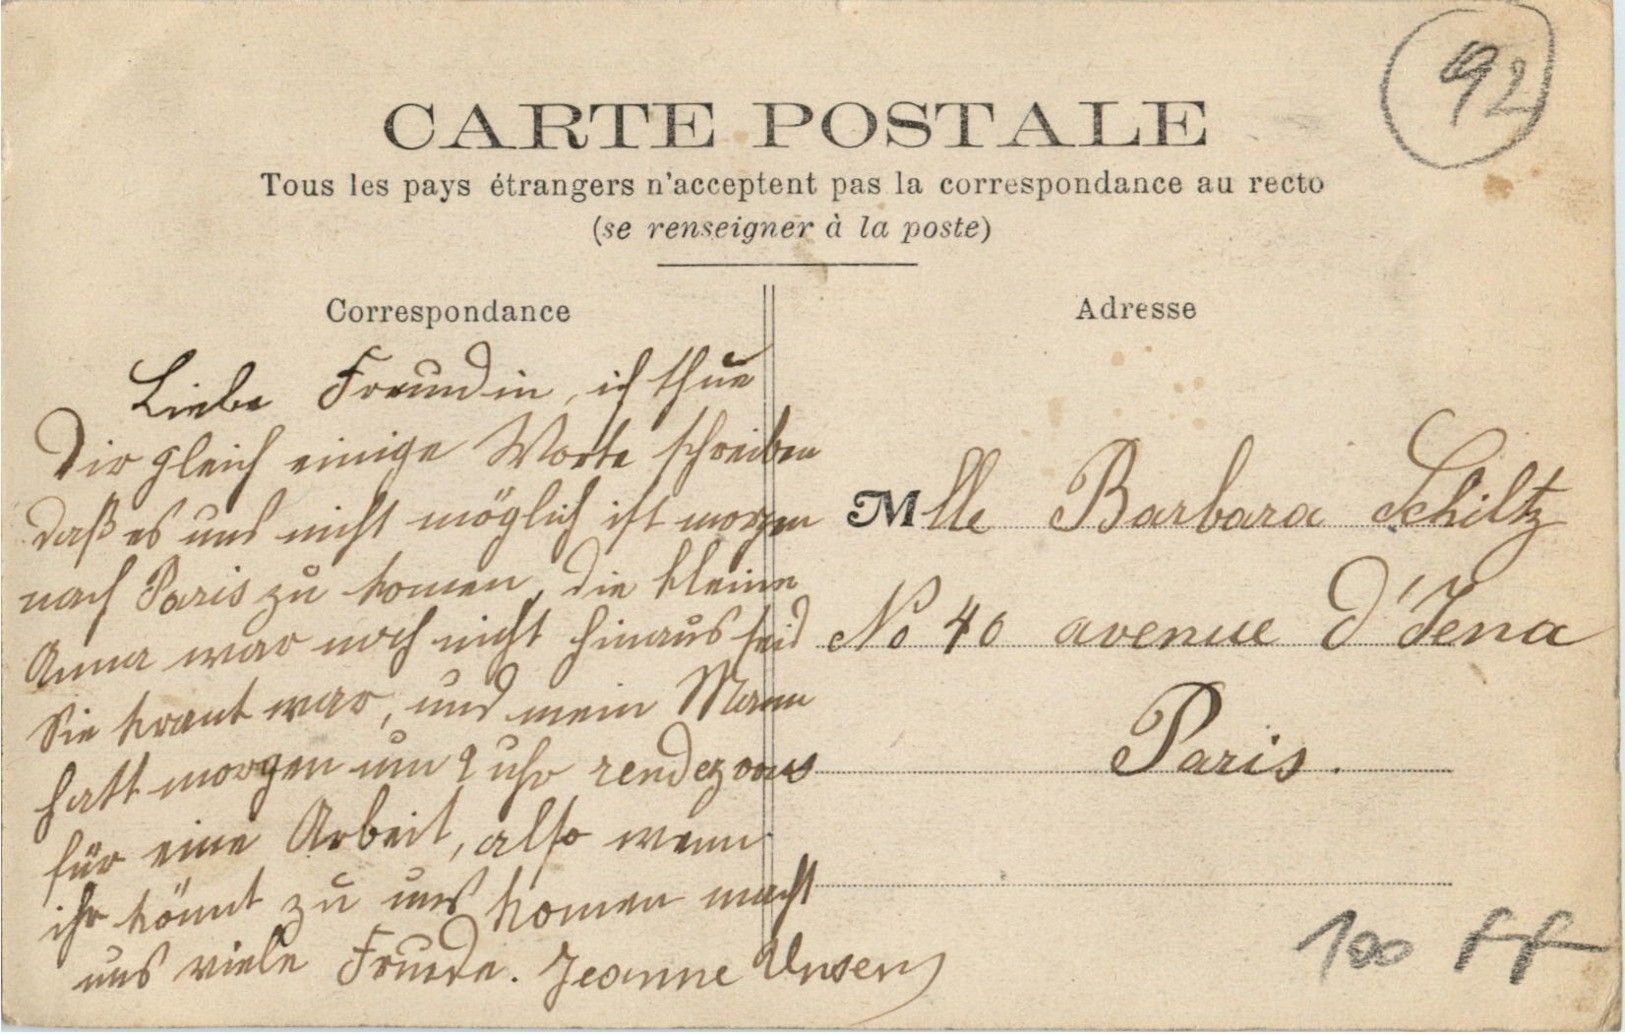 92
CARTE POSTALE
Tous les pays étrangers n'acceptent pas la correspondance au recto
(se renseigner à la poste)
Correspondance
Liebe Freundin, ich thue
Dir gleich einige Worte schreiben
daß es uns nicht möglich ist morgen
nach Paris zu komen, die kleine
Anna war noch nicht hinaus seid
Sie krank war, und mein Mann
hatt morgen um 2 uhr rendez vous
für eine Arbeit, also wenn
ihr könnt zu uns komen macht
uns viele Freude. Jeanne
Adresse
Mlle Barbara Schiltz
No 40 avenue d'Jena
Paris.
100 FF